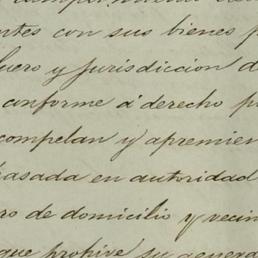 ntes con sus bienes p
fuero y jurisdiccion d
conforme á derecho p
compelan y apremien
pasada en autoridad
ro de domicilio y vecin
que prohive su genera